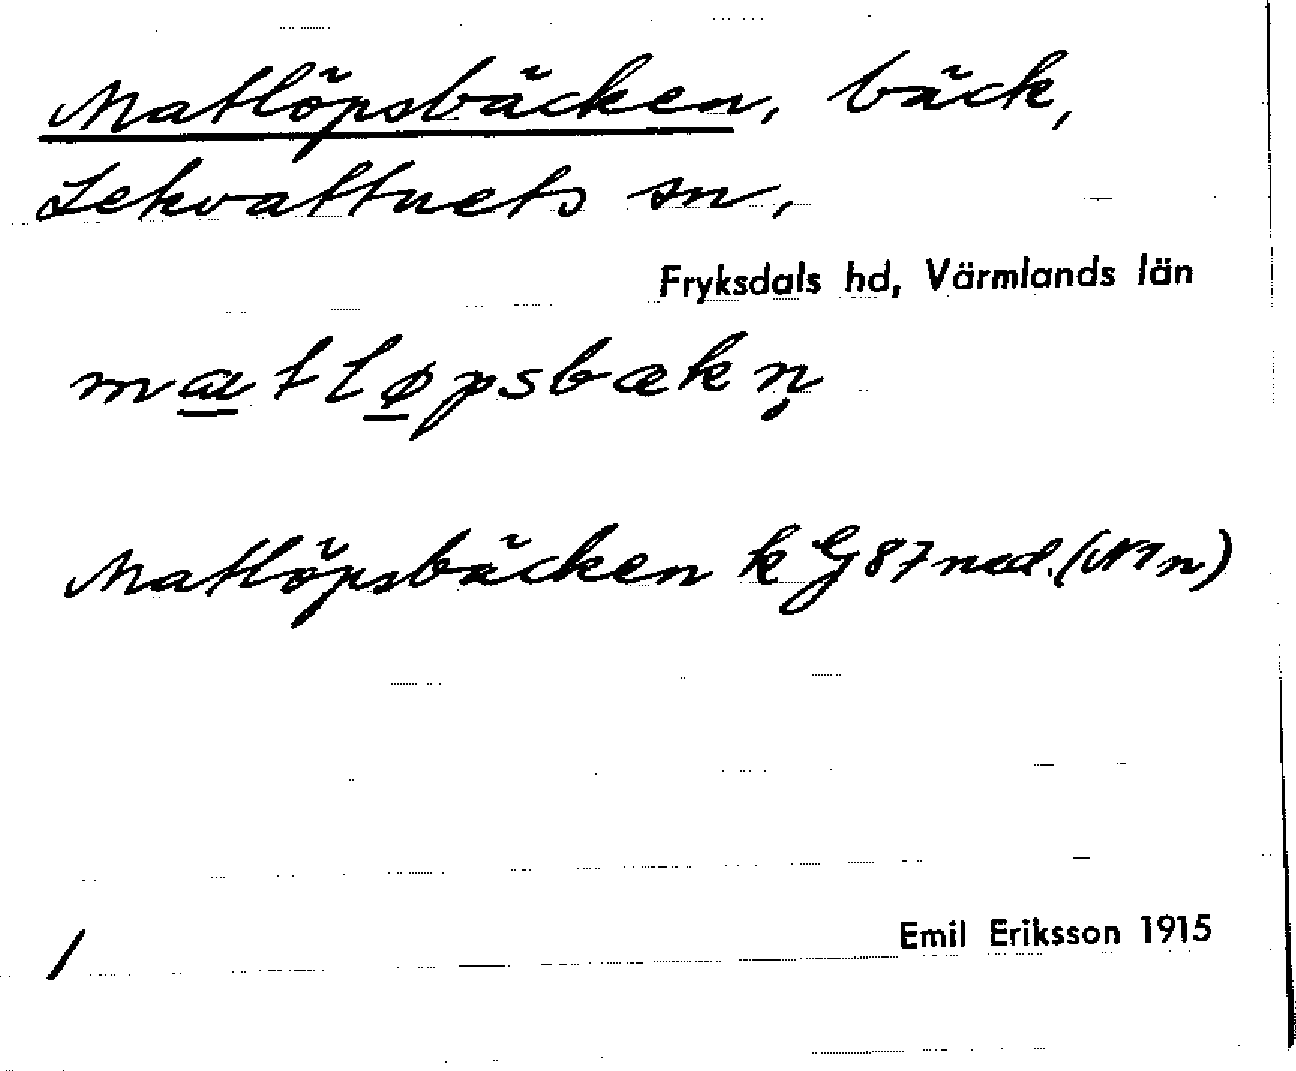 Matlöpsbäcken, bäck,
Lekvattnets sn,
Fryksdals hd, Värmlands län
mætløpsbækn̥
Matlöpsbäcken k G 87 ned. (N1n)
/
Emil Eriksson 1915